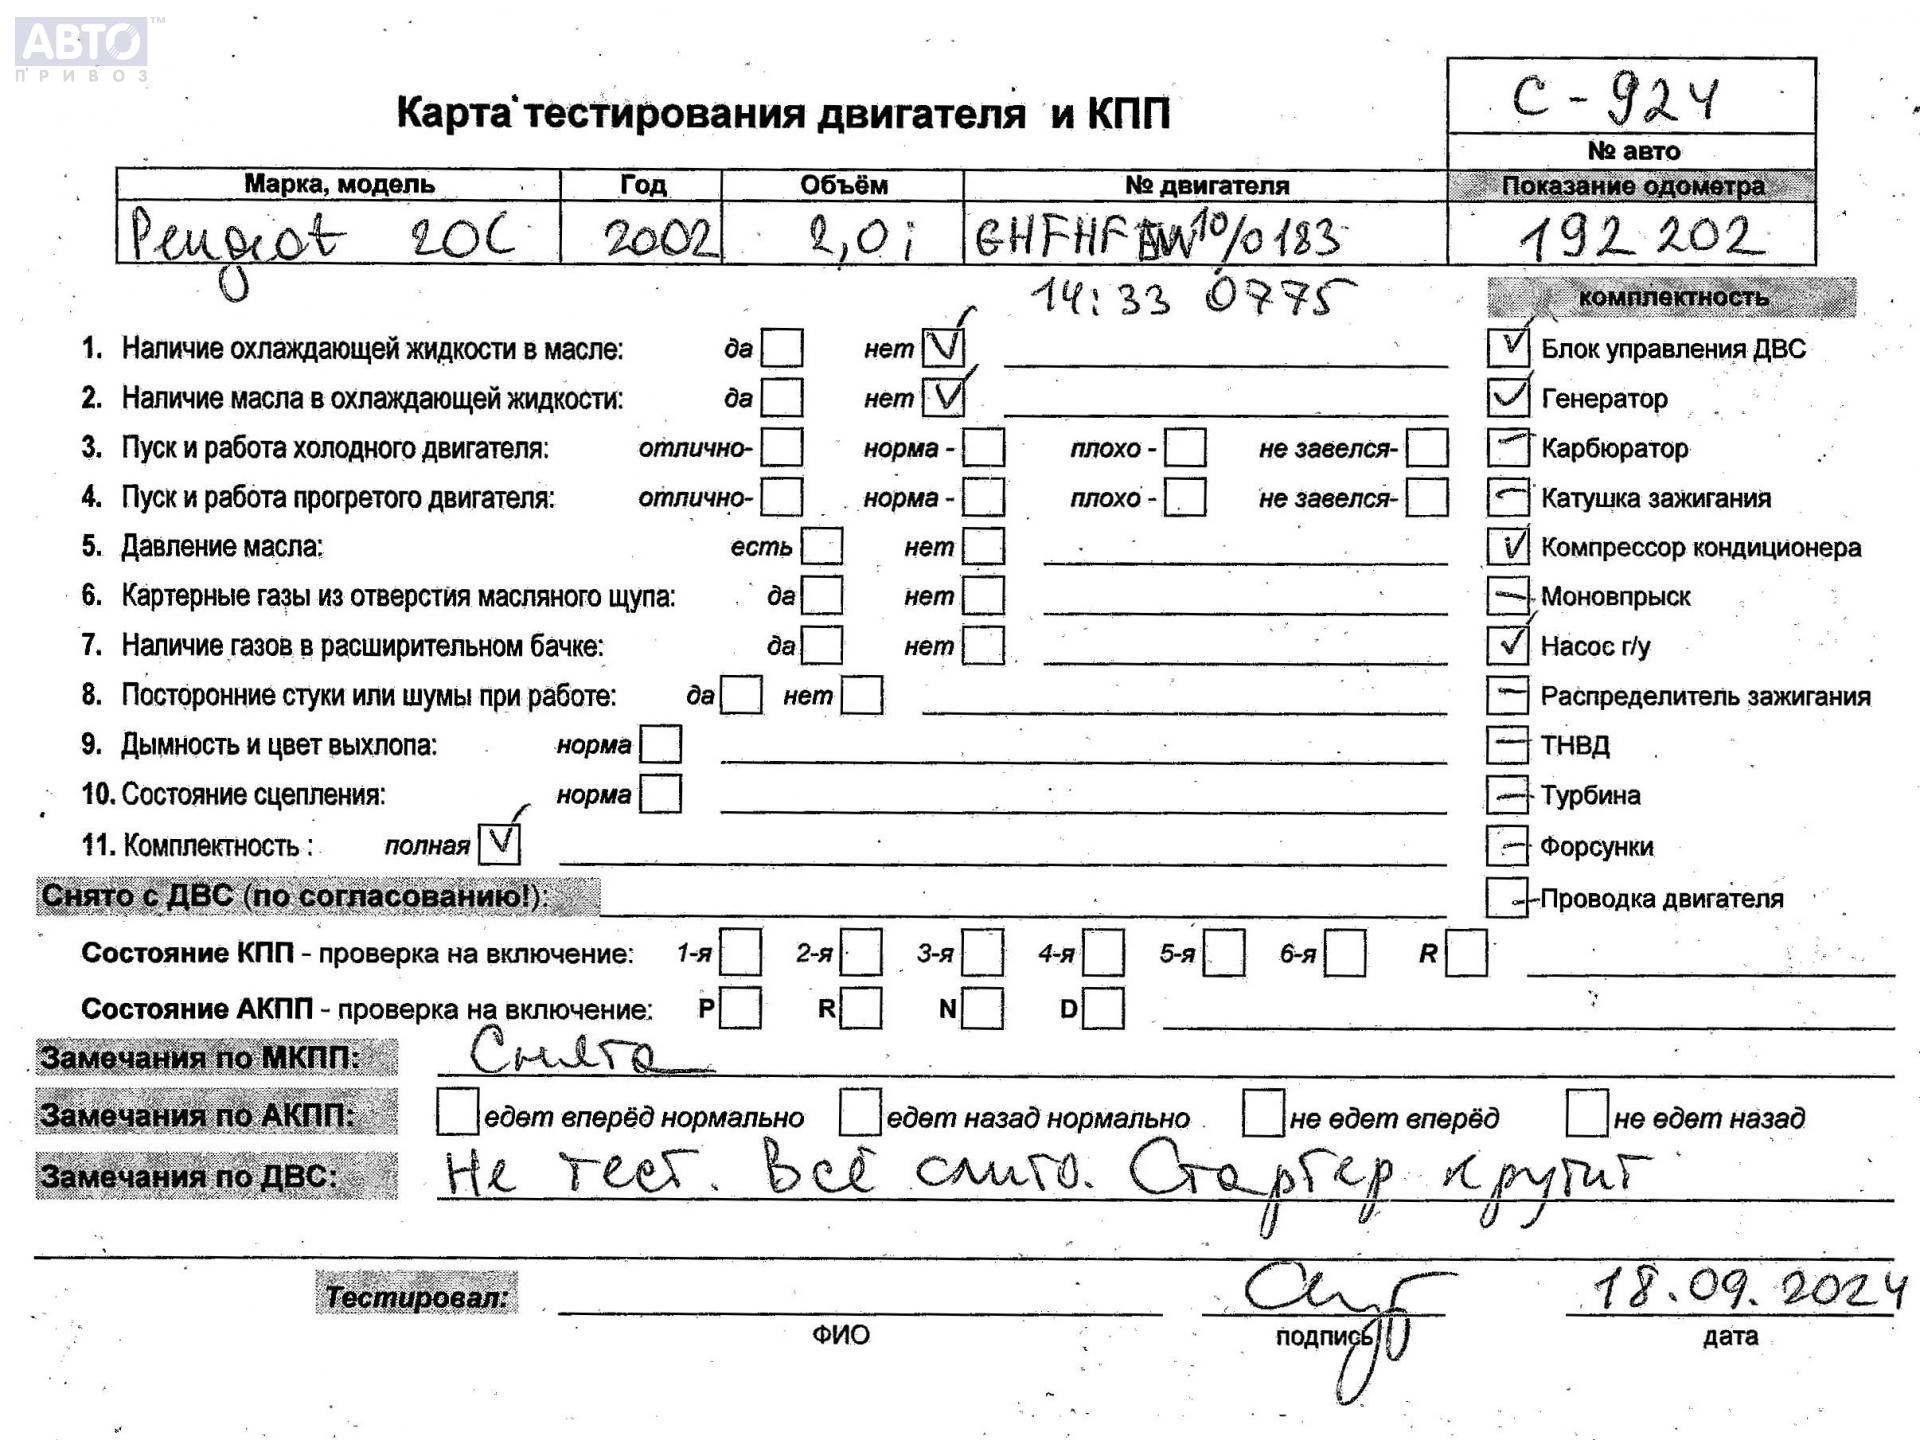 АВТО™
ПРИВОЗ
Карта тестирования двигателя и КПП
С - 924
№ авто
Марка, модель Год Объём № двигателя Показание одометра
Peugeot 20C 2002 2,0 i 192 202
14:33 0775
комплектность
1. Наличие охлаждающей жидкости в масле: да нет V
V Блок управления ДВС
2. Наличие масла в охлаждающей жидкости: да нет V
V Генератор
3. Пуск и работа холодного двигателя: отлично- норма - плохо - не завелся-
— Карбюратор
4. Пуск и работа прогретого двигателя: отлично- норма - плохо - не завелся-
— Катушка зажигания
5. Давление масла: есть нет
V Компрессор кондиционера
6. Картерные газы из отверстия масляного щупа: да нет
— Моновпрыск
7. Наличие газов в расширительном бачке: да нет
V Насос г/у
8. Посторонние стуки или шумы при работе: да нет
— Распределитель зажигания
9. Дымность и цвет выхлопа: норма
— ТНВД
10. Состояние сцепления: норма
— Турбина
11. Комплектность : полная V
— Форсунки
Снято с ДВС (по согласованию!):
— Проводка двигателя
Состояние КПП - проверка на включение: 1-я 2-я 3-я 4-я 5-я 6-я R
Состояние АКПП - проверка на включение: P R N D
Замечания по МКПП: Снята
Замечания по АКПП: едет вперёд нормально едет назад нормально не едет вперёд не едет назад
Замечания по ДВС: Не тест. Всё слито. Стартер крутит
Тестировал: 18.09.2024
ФИО подпись дата